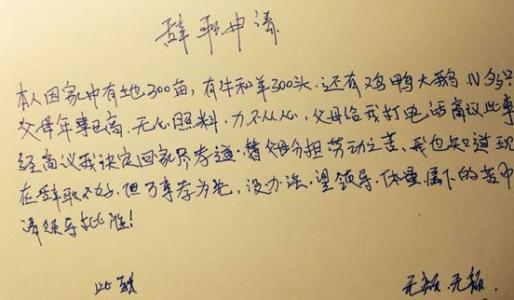 辞职申请
本人因家中有土地300亩,有牛和羊300头.还有鸡鸭大鹅
父母年事已高.无心照料,力不从心,父母给我打电话商议此事
经商议我决定回家尽孝道.替父母分担劳动之苦.我也知道现
在辞职不好.但万事孝为先,没办法.望领导.体量属下的苦中
请领导批准!
此致